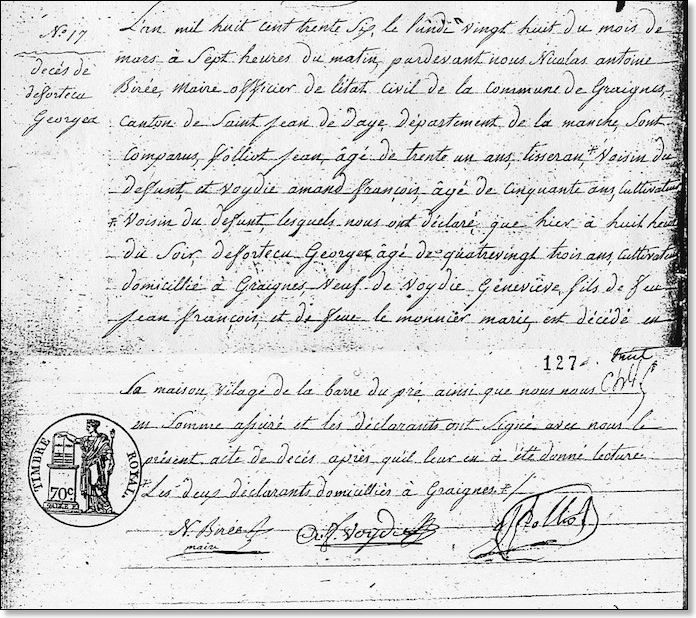 N.º 17
décés de
defortecu
Georges
L'an mil huit cent trente Six, le lundi vingt huit du mois de
mars à Sept heures du matin, pardevant nous Nicolas antoine
Birée, maire officier de l'état civil de la commune de Graignes,
canton de Saint Jean de Daye, département de la manche, Sont
Comparus, folliot Jean, âgé de trente un ans, tisseran, * Voisin du
defunt, et Voydie amand françois, âgé de cinquante ans, cultivateur
* Voisin du defunt, lesquels nous ont déclaré, que hier à huit heures
du Soir, defortecu Georges âgé de quatrevingt trois ans, cultivateur
domicillié à Graignes, Veuf de Voydie Géneviève, fils de feu
Jean françois, et de feue le monnier marie, est décédé en
127
Sa maison, vilage de la barre du pré, ainsi que nous nous
en Somme assuré et les déclarants ont Signé avec nous le
présent acte de decès après qu'il leur en a été donné lecture
* Les deux déclarants domicilliés à Graignes. * /
TIMBRE ROYAL.
70c
N. Birée
maire
Voydie
J Folliot